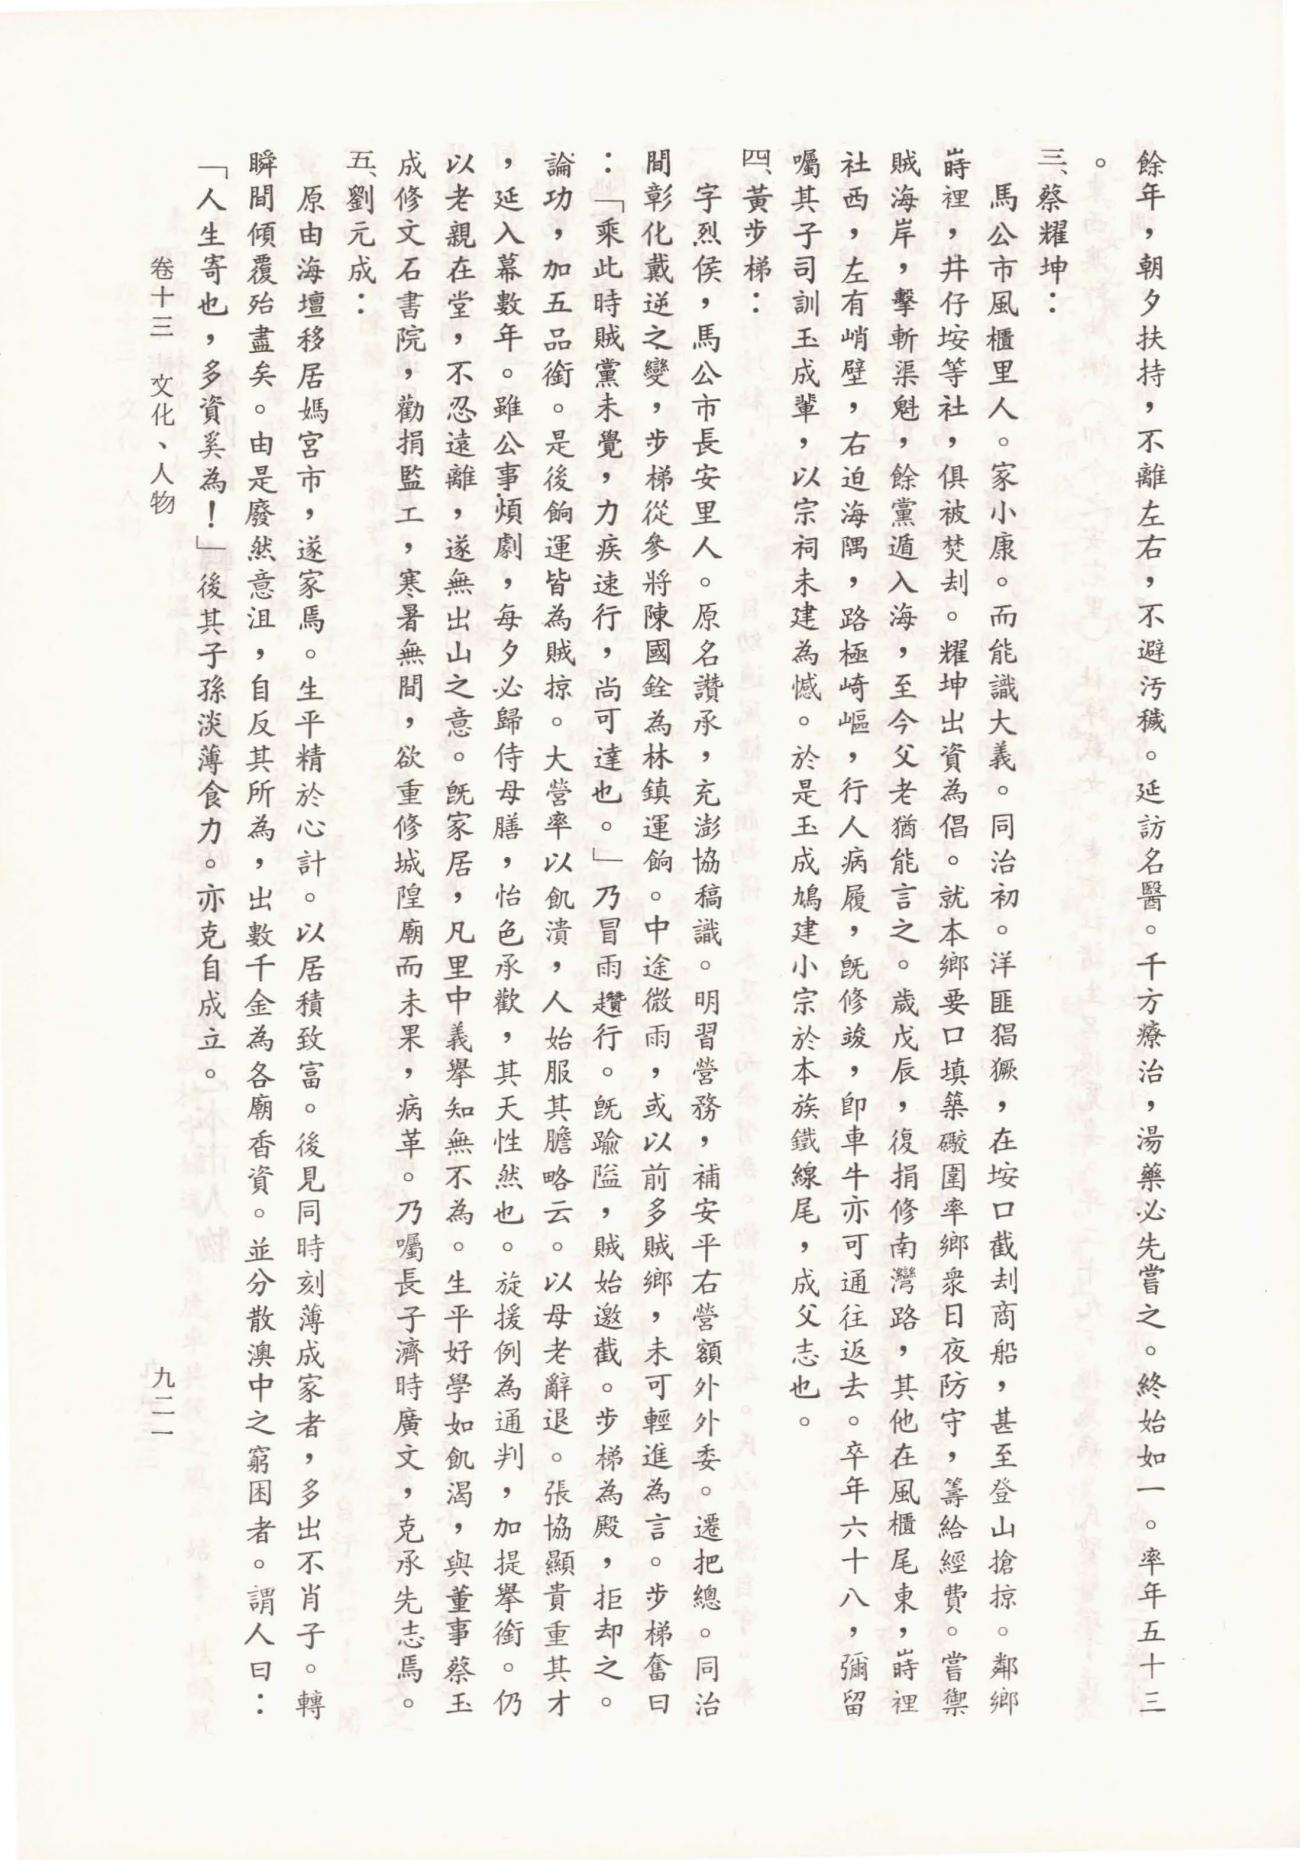 餘年，朝夕扶持，不離左右，不避汚穢。延訪名醫。千方療治，湯藥必先嘗之。終始如一。率年五十三
。
三、蔡耀坤：
馬公市風櫃里人。家小康。而能識大義。同治初。洋匪猖獗，在垵口截刦商船，甚至登山搶掠。鄰鄉
蒔裡，井仔垵等社，俱被焚刦。耀坤出資為倡。就本鄉要口填築礮圍率鄉衆日夜防守，籌給經費。嘗禦
賊海岸，擊斬渠魁，餘黨遁入海，至今父老猶能言之。歲戊辰，復捐修南灣路，其他在風櫃尾東，蒔裡
社西，左有峭壁，右迫海隅，路極崎嶇，行人病履，旣修竣，卽車牛亦可通往返去。卒年六十八，彌留
囑其子司訓玉成輩，以宗祠未建為憾。於是玉成鳩建小宗於本族鐵線尾，成父志也。
四、黃步梯：
字烈侯，馬公市長安里人。原名讚承，充澎協稿識。明習營務，補安平右營額外外委。遷把總。同治
間彰化戴逆之變，步梯從參將陳國銓為林鎮運餉。中途微雨，或以前多賊鄉，未可輕進為言。步梯奮曰
：「乘此時賊黨未覺，力疾速行，尚可達也。」乃冒雨趲行。旣踰隘，賊始邀截。步梯為殿，拒却之。
論功，加五品銜。是後餉運皆為賊掠。大營率以飢潰，人始服其膽略云。以母老辭退。張協顯貴重其才
，延入幕數年。雖公事煩劇，每夕必歸侍母膳，怡色承歡，其天性然也。旋援例為通判，加提舉銜。仍
以老親在堂，不忍遠離，遂無出山之意。旣家居，凡里中義舉知無不為。生平好學如飢渴，與董事蔡玉
成修文石書院，勸捐監工，寒暑無間，欲重修城隍廟而未果，病革。乃囑長子濟時廣文，克承先志焉。
五、劉元成：
原由海壇移居媽宮市，遂家焉。生平精於心計。以居積致富。後見同時刻薄成家者，多出不肖子。轉
瞬間傾覆殆盡矣。由是廢然意沮，自反其所為，出數千金為各廟香資。並分散澳中之窮困者。謂人曰：
「人生寄也，多資奚為！」後其子孫淡薄食力。亦克自成立。
卷十三　文化、人物
九二一